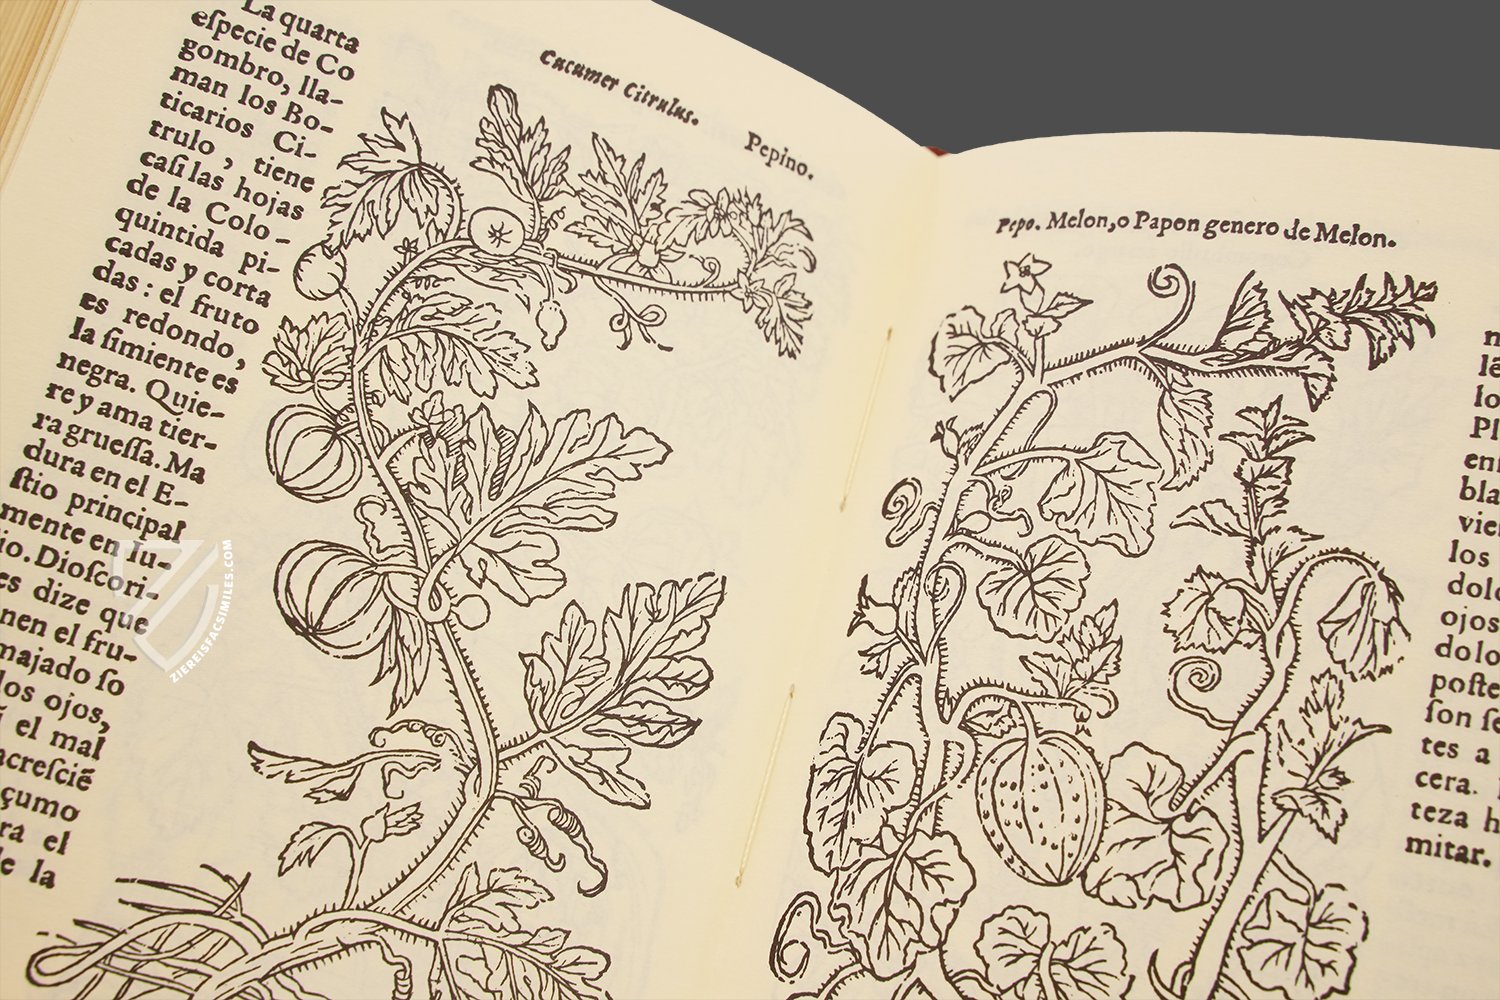 La quarta
eſpecie de Co
gombro, lla-
man los Bo-
ticarios Ci-
trulo, tiene
caſi las hojas
de la Colo-
quintida pi-
cadas y corta
das: el fruto
es redondo,
la ſimiente es
negra. Quie-
re y ama tier-
ra grueſſa. Ma
dura en el E-
ſtio principal
mente en Iu-
io. Dioſcori-
es dize que
nen el fru-
majado ſo
los ojos,
el mal
acreſciẽ
çumo
ra el
de la
Cucumer Citrulus.
Pepino.
Pepo. Melon, o Papon genero de Melon.
lẽ
lo
Pl
bla
vie
los
dolo
ojos
dolo
poſte
ſon ſe
tes a
cera.
teza h
mitar.
ZIEREISFACSIMILES.COM